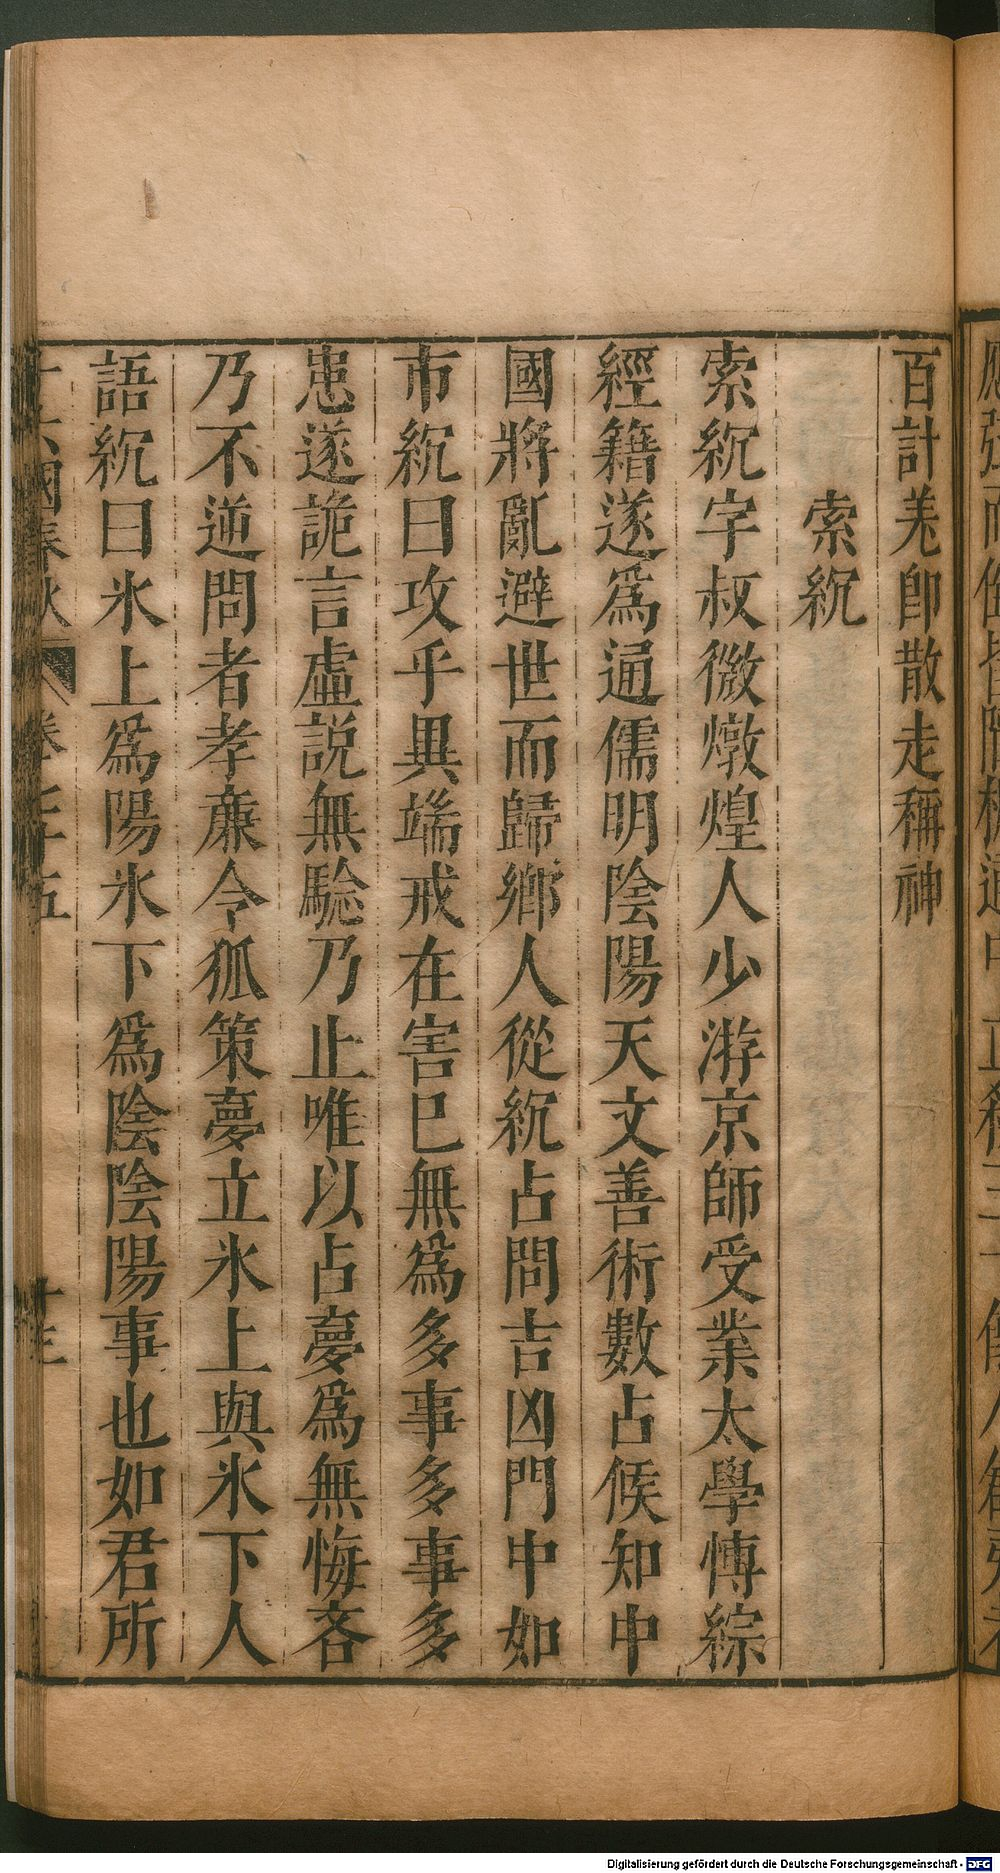 百計羗即散走稱神
索紞
索紞字叔微燉煌人少游京師受業太學博綜
經籍遂爲通儒明陰陽天文善術數占候知中
國將亂避世而歸鄉人從紞占問吉凶門中如
市紞曰攻乎異端戒在害已無爲多事多事多
患遂詭言虛説無驗乃止唯以占夢爲無悔吝
乃不逆問者孝廉令狐策夢立氷上與氷下人
語紞曰氷上爲陽氷下爲陰陰陽事也如君所
十六國春秋 卷七十五 十三
Digitalisierung gefördert durch die Deutsche Forschungsgemeinschaft - DFG